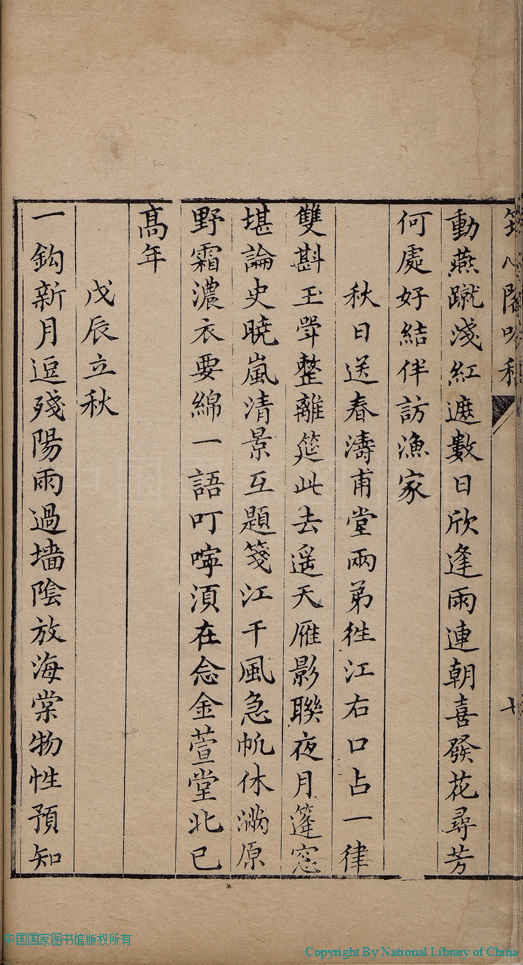 動燕蹴淺紅遮數日欣逢雨連朝喜發花尋芳
何處好結伴訪漁家
秋日送春濤甫堂兩弟徃江右口占一律
雙斟玉斝整離筵此去遥天雁影聯夜月篷窓
堪論史曉嵐清景互題箋江干風急帆休滿原
野霜濃衣要綿一語叮嚀湏在念金萱堂北已
髙年
戊辰立秋
一鈎新月逗殘陽雨過墻陰放海棠物性預知
中国国家图书馆版权所有
Copyright By National Library of China